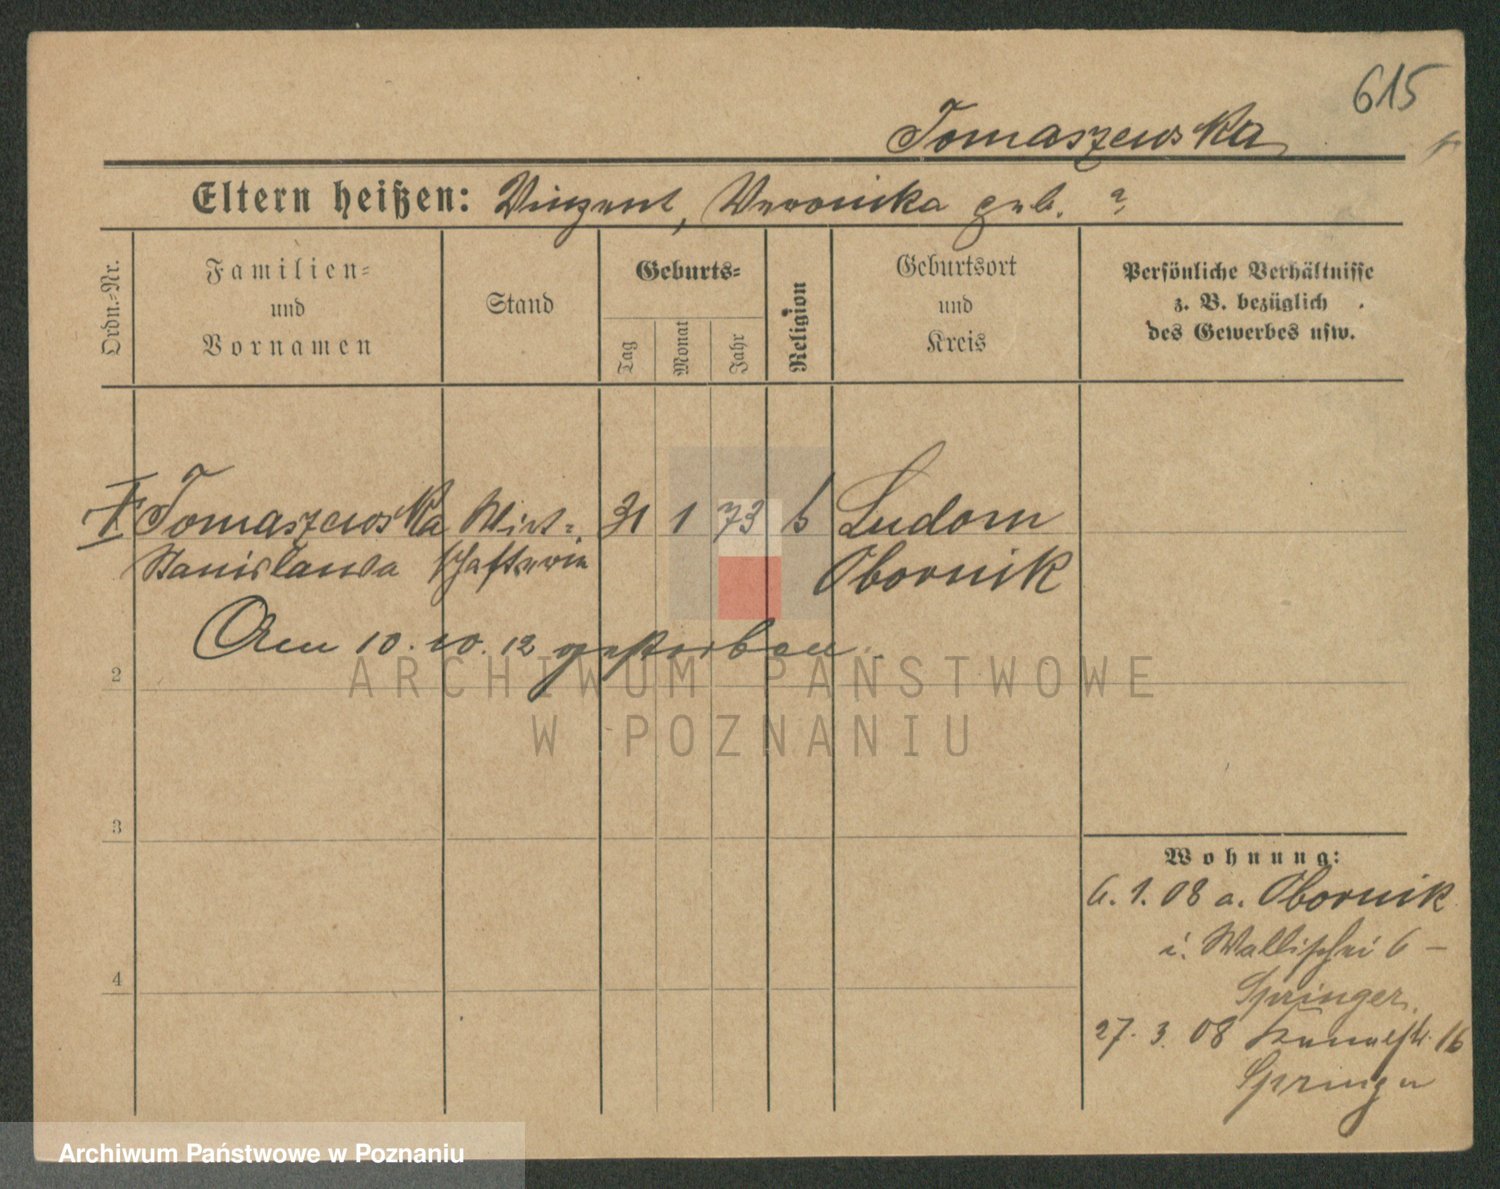 615
Tomaszewska
Eltern heißen: Vinzent, Veronika geb. ?
Ordn.-Nr.
Familien-
und
Vornamen
Stand
Geburts-
Tag
Monat
Jahr
Religion
Geburtsort
und
Kreis
Persönliche Verhältnisse
z. B. bezüglich
des Gewerbes usw.
Tomaszewska Wirt- 31 1 73 Ludom
Stanislawa schafterin Obornik
Am 10.10.12 gestorben.
2
3
4
ARCHIWUM PAŃSTWOWE
W POZNANIU
Wohnung:
6. 1. 08 a. Obornik
i. Wallischei 6 -
Springer.
27. 3. 08 Kanalstr. 16
Springer
Archiwum Państwowe w Poznaniu